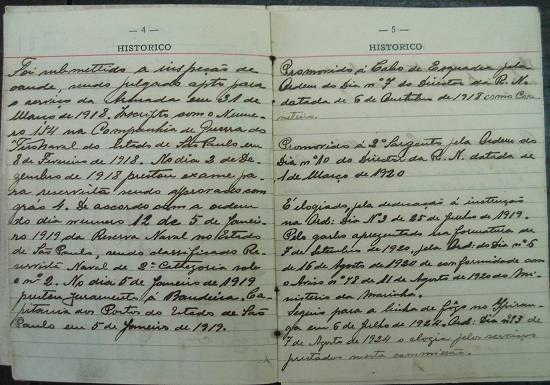 — 4 —
HISTORICO
Foi submettido a inspeção de
saude, sendo julgado apto para
o serviço da Armada em 31 de
Março de 1918. Inscripto som o Nume-
ro 184 na Companhia de Guerra do
Tiro Naval do Estado de São Paulo em
8 de Fevereiro de 1918. No dia 2 de De-
zembro de 1918 prestou exame pa-
ra reservista sendo approvado com
gráo 4. De accordo com a ordem
do dia numero 12 de 5 de Janei-
ro 1919, da Reserva Naval no Estado
de São Paulo, sendo classificado Re-
servista Naval de 2ª Cathegoria sob
o nº 2. No dia 5 de Janeiro de 1919
prestou juramento á Bandeira. Ca-
pitania dos Portos do Estado de São
Paulo em 5 de Janeiro de 1919.
— 5 —
HISTORICO
Promovido á Cabo de Esquadra pela
Ordem do Dia nº 7 do Director da R. N.
datada de 6 de Outubro de 1918 como Cor-
neteiro.
Promovido á 2º Sargento pela Ordem do
Dia nº 10 do Director da R. N. datada de
1 de Março de 1920
É elogiado, pela dedicação á instrucção
na Ord: Dia Nº 3 de 25 de Junho de 1919.
Pelo garbo apresentado na formatura de
7 de Setembro de 1920, pela Ord: do Dia nº 5
de 16 de Agosto de 1920 de conformidade com
o Aviso nº 78 de 11 de Agosto de 1920 do Mi-
nisterio da Marinha.
Seguio para a linha de fôgo no Ypiran-
ga em 6 de Julho de 1924. Ord: Dia nº 3 de
7 de Agosto de 1924 o elogia pelos serviços
prestados nesta commissão.